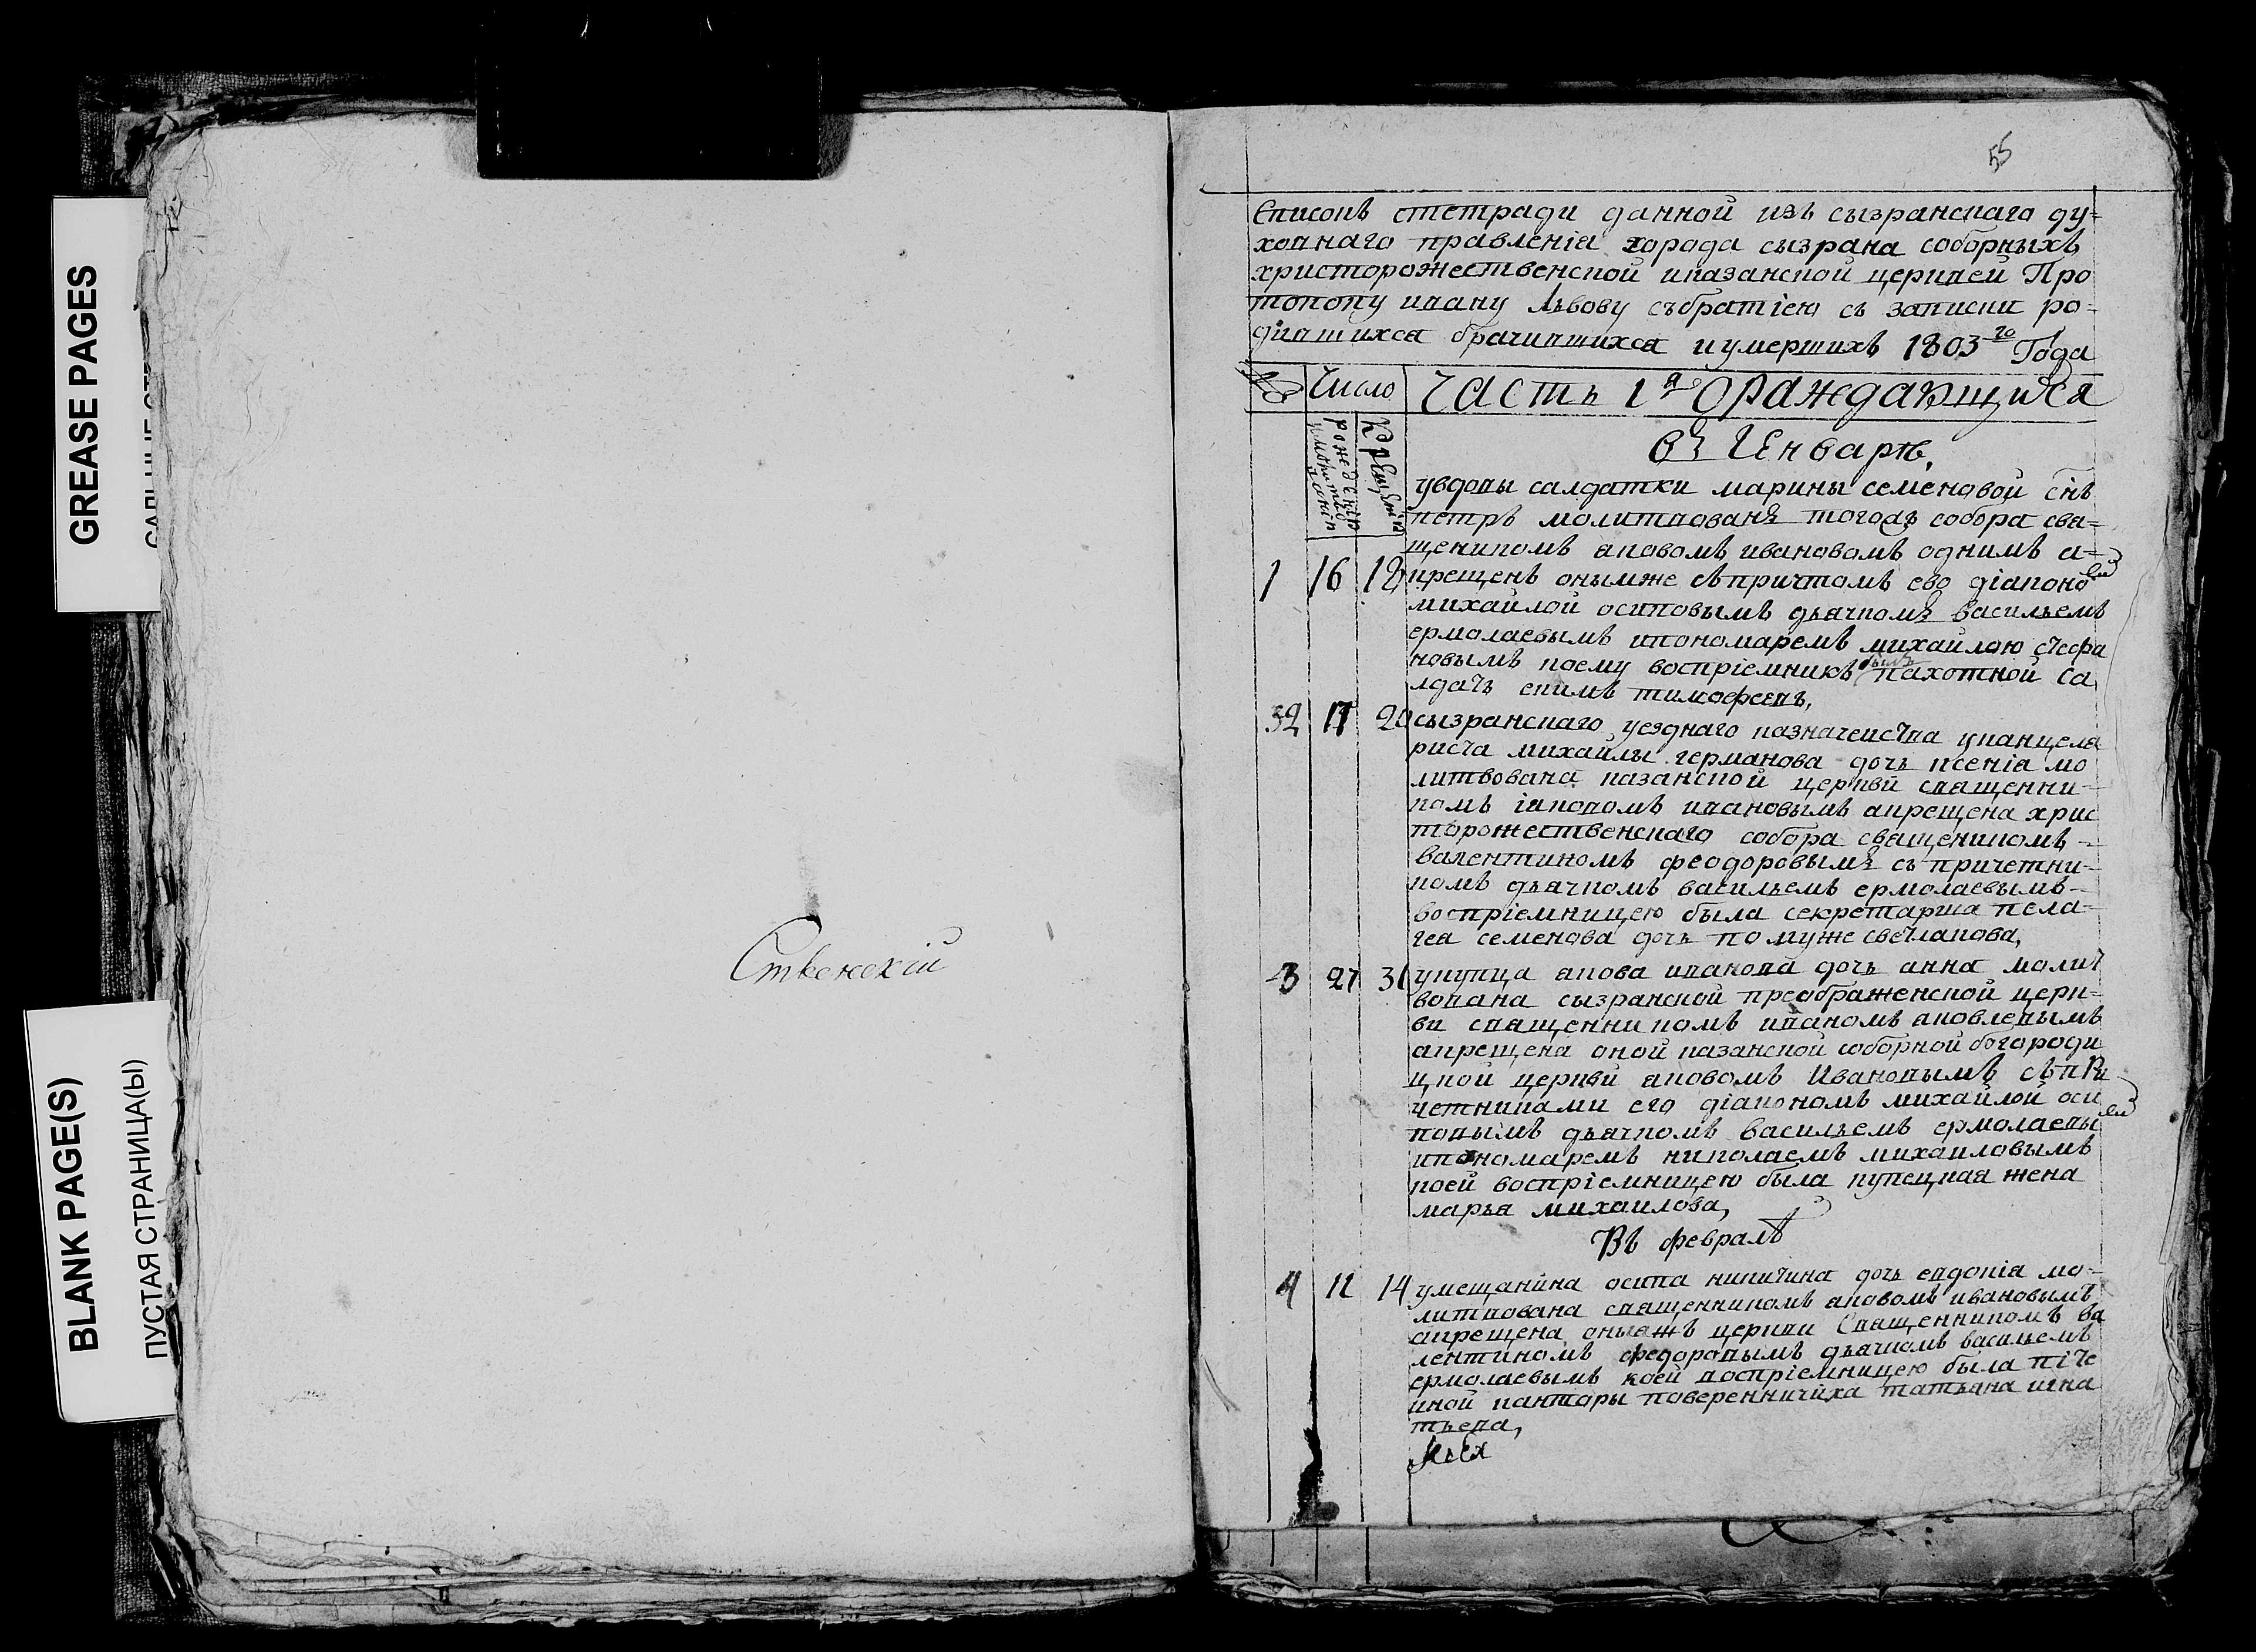 GREASE PAGES
BLANK PAGE(S)
ПУСТАЯ СТРАНИЦА(Ы)
55
Списокъ стетради данной изъ сызранскаго ду=
ховнаго правленіа города сызрана соборныхъ
христорожественской иказанской церквей Про
топопу ивану Львову събратіею съ записки ро=
дившихса брачившихса иумершихъ 1803го Года
Число Часть 1я О раждающихся
рожденіи имолитвованіи Крещеніи
въ Генварѣ,
увдовы салдатки марины семеновой снъ
петръ молитвованъ тогожъ собора сва=
щеникомъ аковомъ ивановомъ однимъ а=
1 16 18 крещенъ онымже съпричтомъ ево діаконо
михайлой осиповымъ дьачкомъ васильемъ
ермолаевымъ ипономаремъ михаилою стефа
новымъ коему воспріемникъ былъ пахотной са
лдатъ екимъ тимофеевъ,
32 17 20 сызранскаго уезднаго казначейства уканцеля
риста михайлы германова дочь ксеніа мо
литвована казанской церкви сващенни=
комъ іаковомъ ивановымъ акрещена хрис
торожественскаго собора сващеникомъ
валентиномъ феодоровымъ съ причетни=
комъ дьачкомъ васильемъ ермолаевымъ
воспріемницею была секретарша пела=
геа семенова дочь по муже светлакова,
3 27 31 укупца акова иванова дочь анна молит
вована сызранской преображенской церк=
ви сващенникомъ иваномъ аковлевымъ
акрещена оной казанской соборной богороди
цкой церкви аковомъ Ивановымъ съпри
четниками его діакономъ михайлой оси
повымъ дьачкомъ васильемъ ермолаевы
ипономаремъ николаемъ михаиловымъ
коей воспріемницею была купецкая жена
марья михаилова,
Ственскій
Въ февралѣ
4 12 14 умещанина осипа никитина дочь евдокіа мо=
литвована сващенникомъ аковомъ ивановымъ
акрещена оныажъ церкви Сващенникомъ ва
лентиномъ федоровымъ дьачкомъ васильемъ
ермолаевымъ коей воспріемницею была питей
ной канторы поверенничиха татьяна игна
тьева,